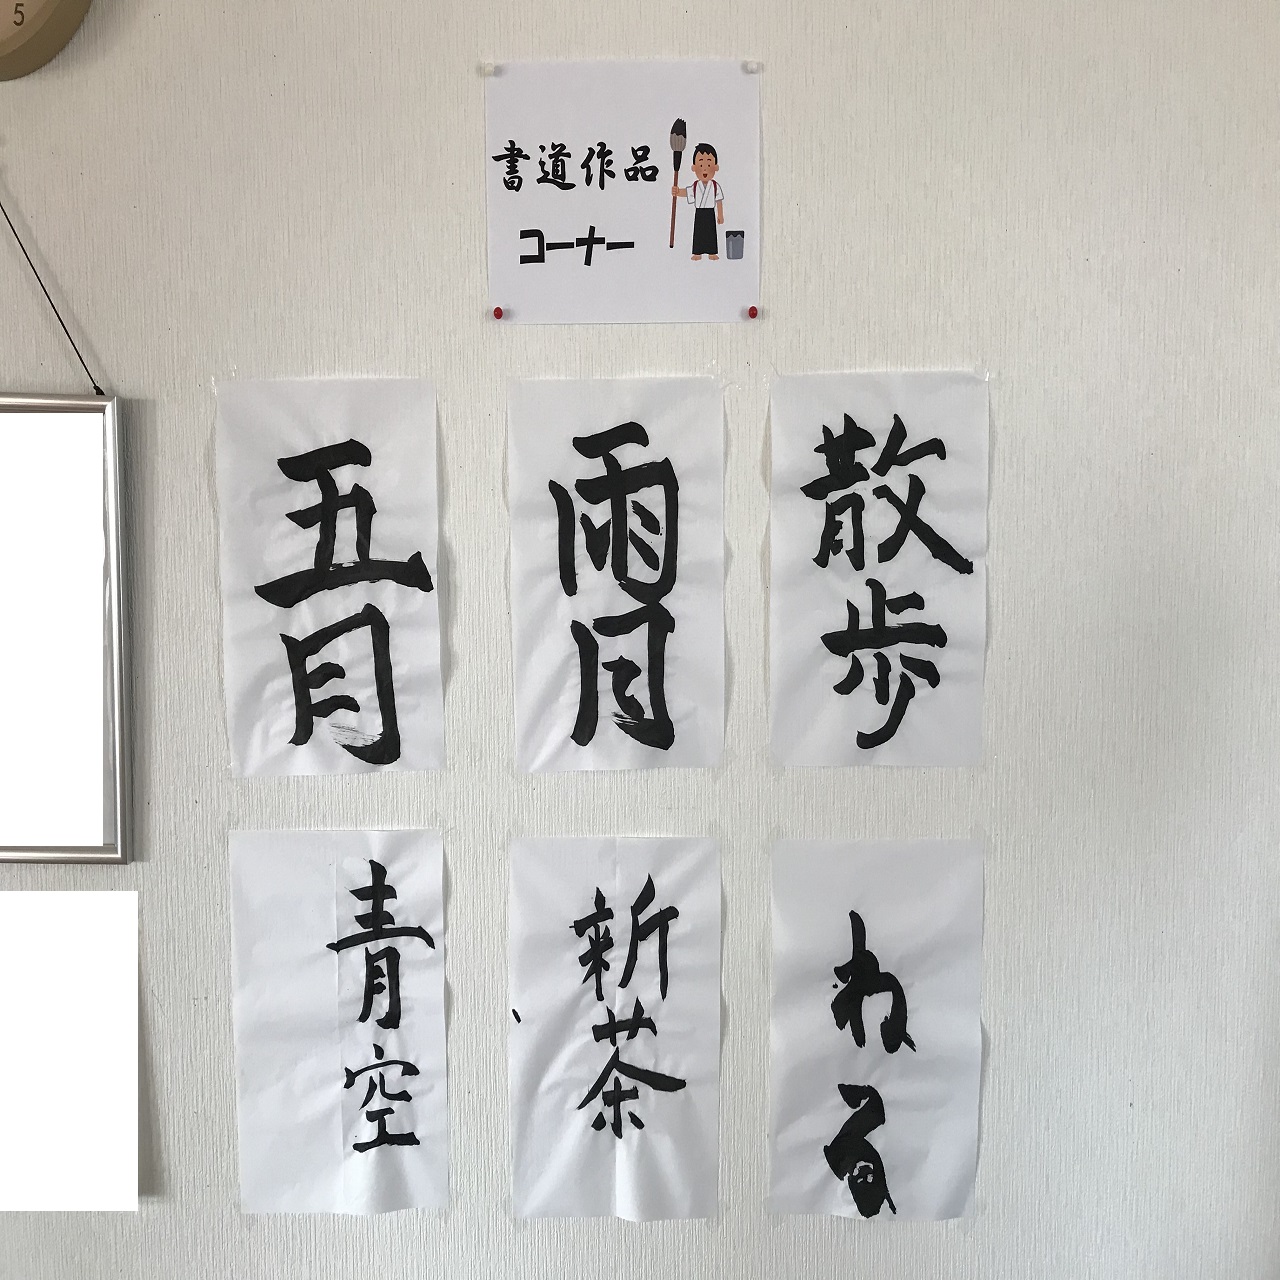 5
書道作品
コーナー
五月
雨月
散歩
青空
新茶
ねる